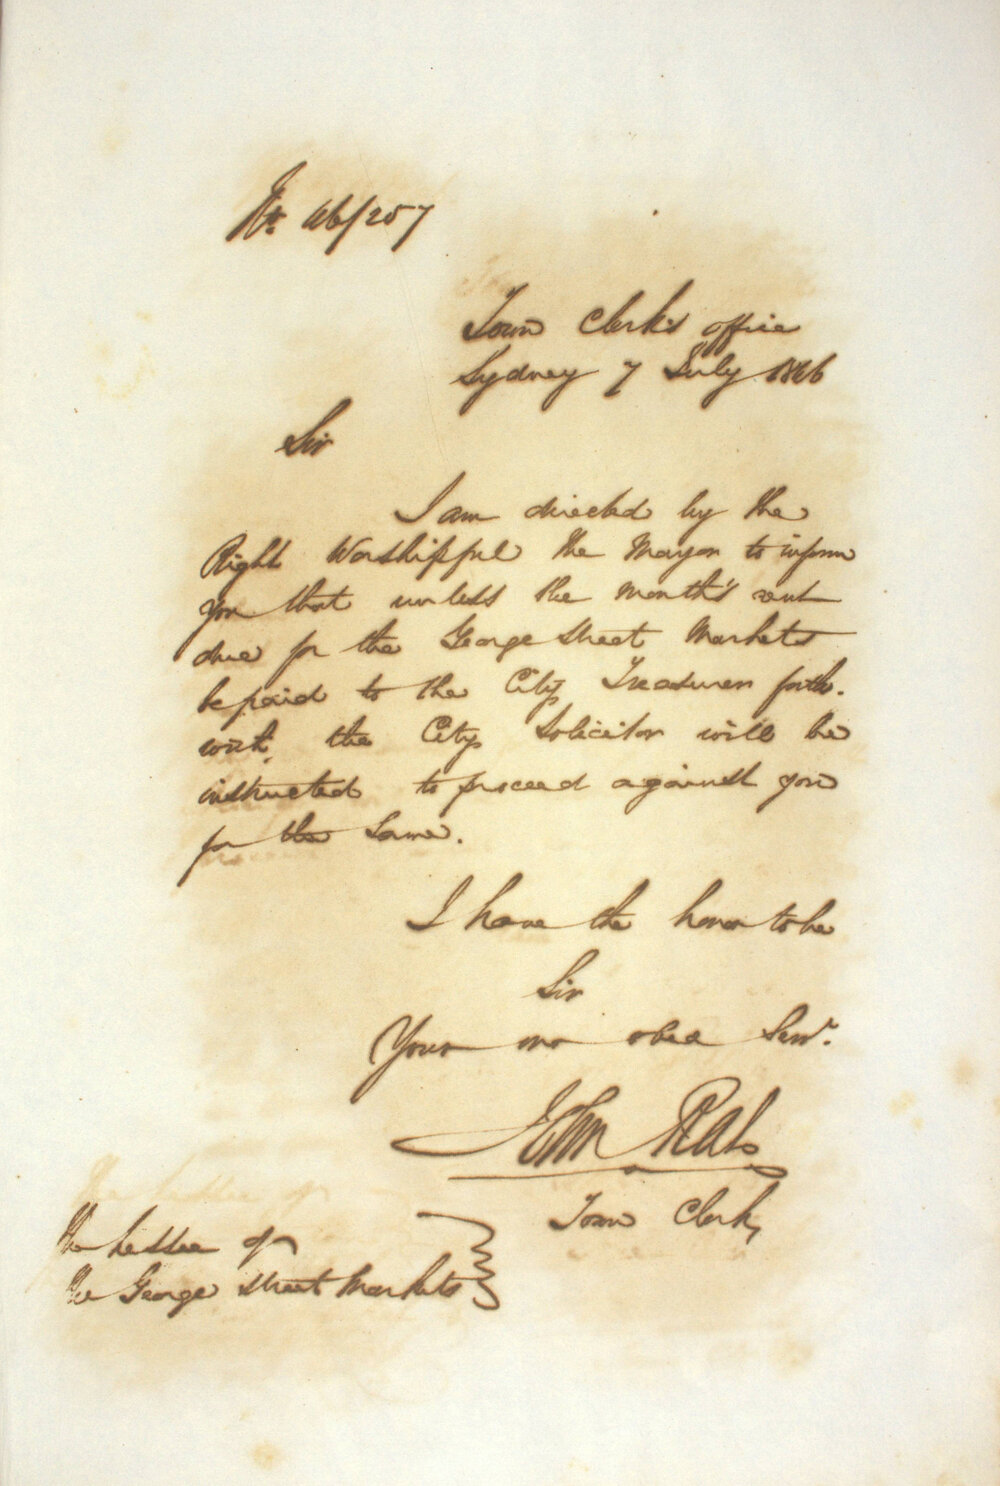 No. 46/257
Town Clerk's office
Sydney 7 July 1846
Sir
I am directed by the
Right Worshipful the Mayor to inform
you that unless the month's rent
due for the George Street Markets
be paid to the City Treasurer forth-
with, the City Solicitor will be
instructed to proceed against you
for the same.
I have the honor to be
Sir
Your mo obed Serv.
John
Town Clerk,
the Lessee of
the George Street Markets